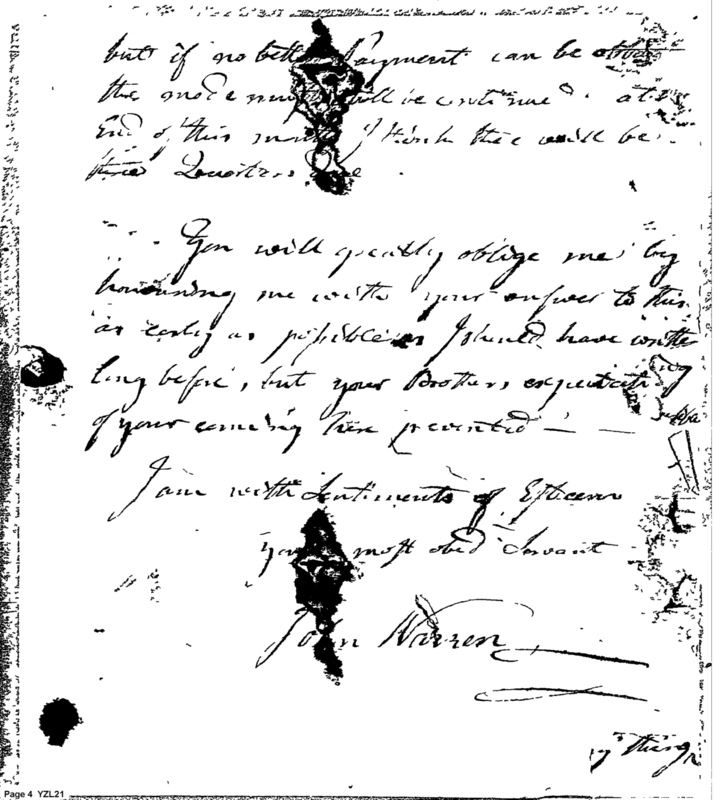 but if no better Payment can be
the mode must still be continued at
End of this month I think there will be
three Quarters due
You will greatly oblige me by
honouring me with your answer to this
as early as possible as I should have
long before, but your Brothers
of your coming here prevented —
I am with Sentiments of Esteem
most obed Servant
John Warren
Page 4 YZL21